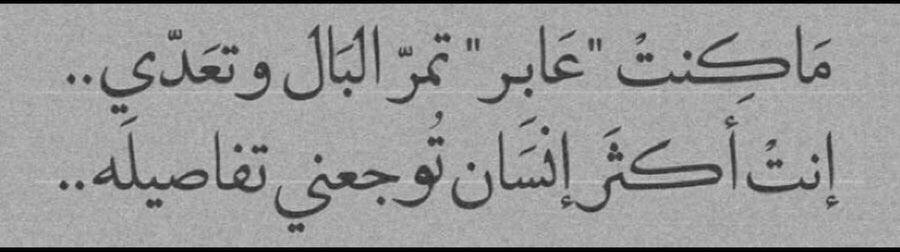 مَا كِنتْ "عَابر" تمرّ البَال و تعَدّي..
إنتْ أكثَر إنسَان تُوجعني تفاصيلَه..